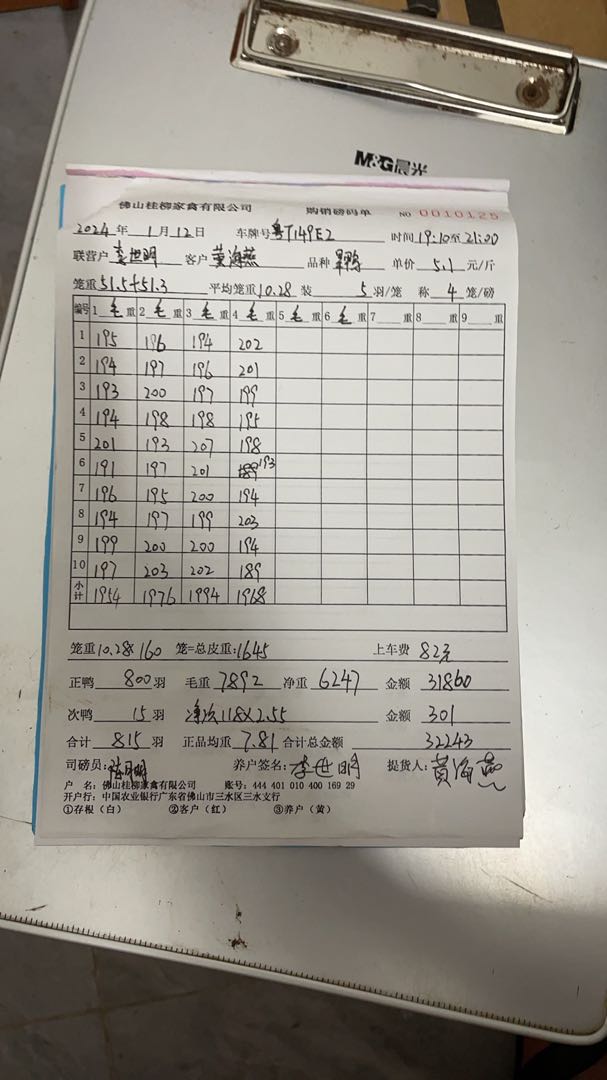 M&G晨光
佛山桂柳家禽有限公司 购销磅码单 NO 0010125
2024年 1月12日 车牌号 粤T149E2 时间19:10至21:00
联营户 李世明 客户 黄海燕 品种 单价 5.1 元/斤
笼重 51.5+51.3 平均笼重 10.28 装 5 羽/笼 称 4 笼/磅
编号 1 毛 重 2 毛 重 3 毛 重 4 毛 重 5 毛 重 6 毛 重 7 重 8 重 9 重
1 195 196 194 202
2 194 197 196 201
3 193 200 197 199
4 194 198 198 195
5 201 193 207 198
6 191 197 201 193
7 196 195 200 194
8 194 197 199 203
9 199 200 200 194
10 197 203 202 189
小计 1954 1976 1994 1968
笼重 10.28×160 笼=总皮重:1645 上车费 82元
正鸭 800 羽 毛重 7892 净重 6247 金额 31860
次鸭 15 羽 净次118×2.55 金额 301
合计 815 羽 正品均重 7.81 合计总金额 32243
司磅员: 养户签名: 李世明 提货人: 黄海燕
户 名: 佛山桂柳家禽有限公司 账号: 444 401 010 400 169 29
开户行: 中国农业银行广东省佛山市三水区三水支行
①存根（白） ②客户（红） ③养户（黄）